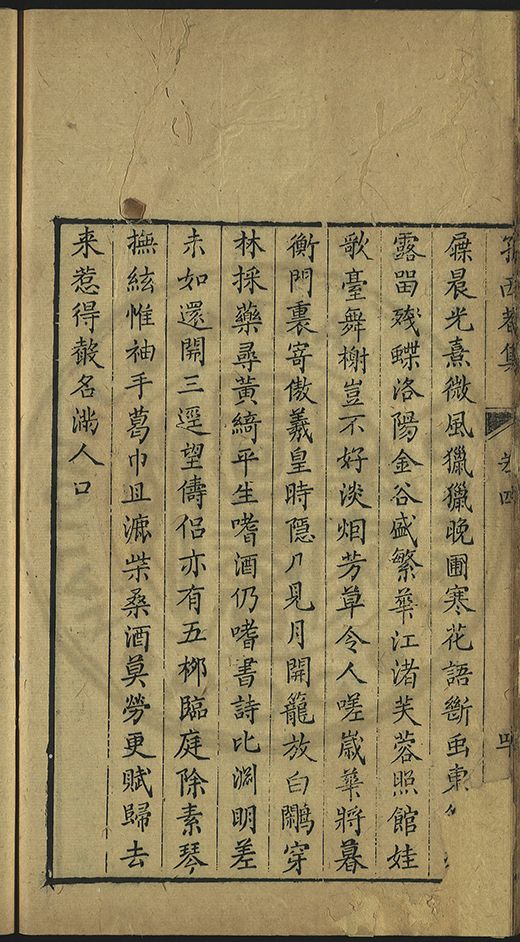 之四
屧晨光熹微風獵獵晚圃寒花語斷䖝東
露㽞殘蝶洛陽金谷盛繁華江渚芙蓉照館娃
歌臺舞榭豈不好淡烟芳草令人嗟歲華將暮
衡門裏寄傲羲皇時隱几見月開籠放白鷴穿
林採藥尋黃綺平生嗜酒仍嗜書詩比淵明差
未如還開三逕望儔侶亦有五栁臨庭除素琴
撫絃惟袖手葛巾且漉柴桑酒莫勞更賦歸去
来惹得散名滿人口